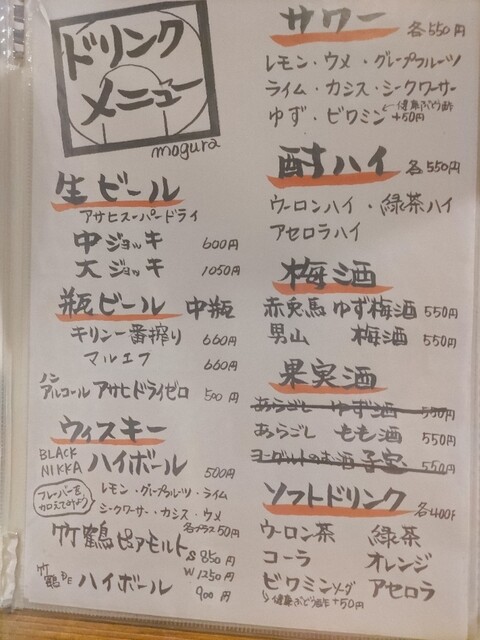 ドリンク
メニュー
mogura
生ビール
アサヒスーパードライ
中ジョッキ 600円
大ジョッキ 1050円
瓶ビール 中瓶
キリン一番搾り 660円
マルエフ 660円
ノンアルコール アサヒドライゼロ 500円
ウィスキー
BLACK NIKKA ハイボール 500円
フレーバーをカロエてみよう
レモン・グレープフルーツ・ライム
シークワーサー・カシス・ウメ
各プラス50円
竹鶴ピュアモルト S 850円
W 1250円
竹鶴 ハイボール 900円
サワー 各550円
レモン・ウメ・グレープフルーツ
ライム・カシス・シークワーサー
ゆず・ビワミン ←健康ぶどう酢 +50円
酎ハイ 各550円
ウーロンハイ・緑茶ハイ
アセロラハイ
梅酒
赤兎馬 ゆず梅酒 550円
男山 梅酒 550円
果実酒
あらごし ゆず酒 550円
あらごし もも酒 550円
ヨーグルトのお酒 550円
ソフトドリンク 各400円
ウーロン茶 緑茶
コーラ オレンジ
ビワミンソーダ アセロラ
↳健康ぶどう酢 +50円